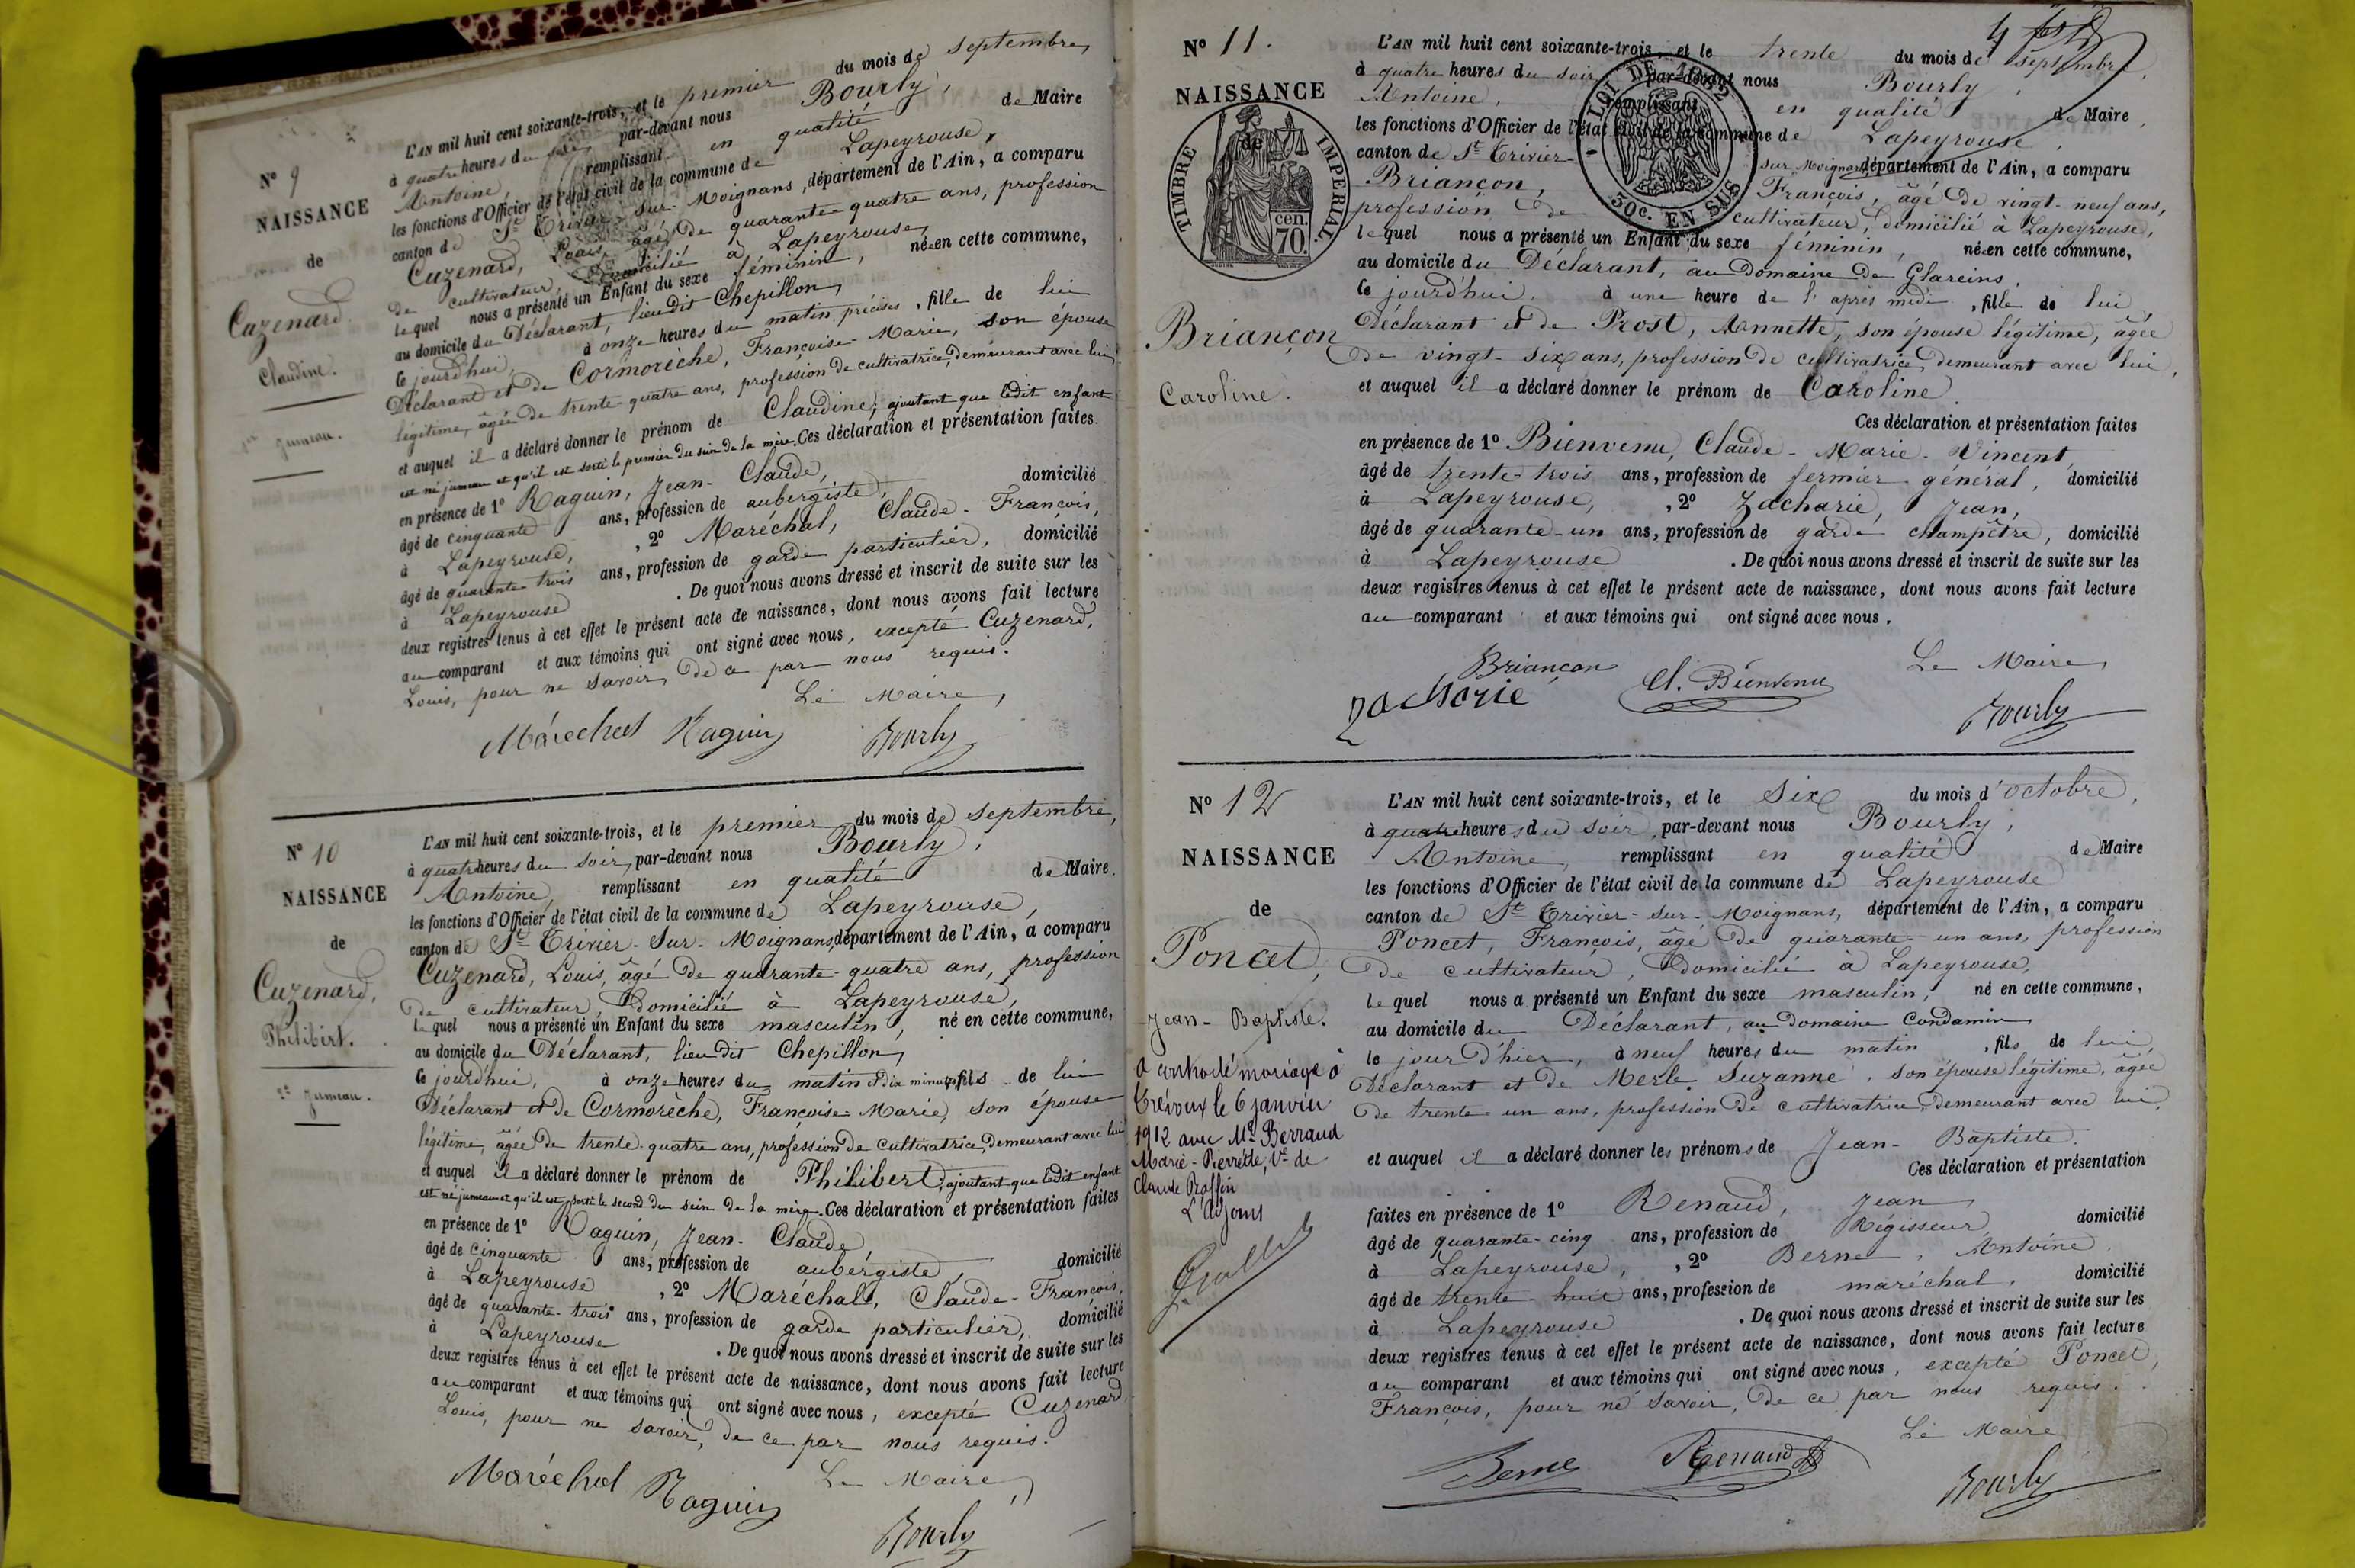 N° 9
NAISSANCE
de
Cuzenard
Claudine.
1er Jumeau.
L'AN mil huit cent soixante-trois, et le premier du mois de septembre,
à quatre heures du soir, par-devant nous Bourly,
Antoine, remplissant en qualité de Maire
les fonctions d'Officier de l'état civil de la commune de Lapeyrouse,
canton de St Trivier-sur-Moignans, département de l'Ain, a comparu
Cuzenard, Louis, âgé de quarante-quatre ans, profession
de cultivateur, domicilié à Lapeyrouse,
lequel nous a présenté un Enfant du sexe féminin, née en cette commune,
au domicile du Déclarant, lieu dit Chepillon,
ce jourd'hui, à onze heures du matin précises, fille de lui
Déclarant et de Cormorèche, Françoise-Marie, son épouse
légitime, âgée de trente-quatre ans, profession de cultivatrice, demeurant avec lui,
et auquel il a déclaré donner le prénom de Claudine, ajoutant que ledit enfant
est né jumeau et qu'il est sorti le premier du sein de la mère. Ces déclaration et présentation faites
en présence de 1° Raguin, Jean-Claude,
âgé de cinquante ans, profession de aubergiste, domicilié
à Lapeyrouse, , 2° Maréchal, Claude-François,
âgé de quarante-trois ans, profession de garde particulier, domicilié
à Lapeyrouse . De quoi nous avons dressé et inscrit de suite sur les
deux registres tenus à cet effet le présent acte de naissance, dont nous avons fait lecture
au comparant et aux témoins qui ont signé avec nous, excepté Cuzenard,
Louis, pour ne savoir, de ce par nous requis.
Le Maire,
Maréchal Raguin Bourly
N° 10
NAISSANCE
de
Cuzenard,
Philibert.
2e Jumeau.
L'AN mil huit cent soixante-trois, et le premier du mois de septembre,
à quatre heures du soir, par-devant nous Bourly,
Antoine, remplissant en qualité de Maire.
les fonctions d'Officier de l'état civil de la commune de Lapeyrouse,
canton de St Trivier-sur-Moignans, département de l'Ain, a comparu
Cuzenard, Louis, âgé de quarante-quatre ans, profession
de cultivateur, domicilié à Lapeyrouse,
lequel nous a présenté un Enfant du sexe masculin, né en cette commune,
au domicile du Déclarant, lieu dit Chepillon,
ce jourd'hui, à onze heures du matin et dix minutes, fils de lui
Déclarant et de Cormorèche, Françoise-Marie, son épouse
légitime, âgée de trente-quatre ans, profession de cultivatrice, demeurant avec lui
et auquel il a déclaré donner le prénom de Philibert, ajoutant que ledit enfant
est né jumeau et qu'il est sorti le second du sein de la mère. Ces déclaration et présentation faites
en présence de 1° Raguin, Jean-Claude
âgé de cinquante ans, profession de aubergiste, domicilié
à Lapeyrouse , 2° Maréchal, Claude-François,
âgé de quarante-trois ans, profession de garde particulier, domicilié
à Lapeyrouse . De quoi nous avons dressé et inscrit de suite sur les
deux registres tenus à cet effet le présent acte de naissance, dont nous avons fait lecture
au comparant et aux témoins qui ont signé avec nous, excepté Cuzenard
Louis, pour ne savoir, de ce par nous requis.
Le Maire,
Maréchal Raguin Bourly
N° 11.
NAISSANCE
de
TIMBRE IMPERIAL
70 cen.
LOI DE 1862
50c. EN SUS
Briançon
Caroline.
L'AN mil huit cent soixante-trois, et le trente du mois de septembre,
à quatre heures du soir par-devant nous Bourly,
Antoine, remplissant en qualité de Maire,
les fonctions d'Officier de l'état civil de la commune de Lapeyrouse,
canton de St Trivier-sur-Moignans département de l'Ain, a comparu
Briançon, François, âgé de vingt-neuf ans,
profession de cultivateur, domicilié à Lapeyrouse,
lequel nous a présenté un Enfant du sexe féminin, née en cette commune,
au domicile du Déclarant, au Domaine de Glareins,
ce jourd'hui, à une heure de l'après midi, fille de lui
Déclarant et de Prost, Annette, son épouse légitime, âgée
de vingt-six ans, profession de cultivatrice, demeurant avec lui,
et auquel il a déclaré donner le prénom de Caroline.
Ces déclaration et présentation faites
en présence de 1° Bienvenu, Claude-Marie-Vincent,
âgé de trente-trois ans, profession de fermier général, domicilié
à Lapeyrouse, , 2° Zacharie, Jean,
âgé de quarante-un ans, profession de garde champêtre, domicilié
à Lapeyrouse . De quoi nous avons dressé et inscrit de suite sur les
deux registres tenus à cet effet le présent acte de naissance, dont nous avons fait lecture
au comparant et aux témoins qui ont signé avec nous.
Briançon Le Maire,
Zacharie Cl. Bienvenu Bourly
N° 12
NAISSANCE
de
Poncet,
Jean-Baptiste.
a contracté mariage à
Trévoux le 6 janvier
1912 avec Me Berraud
Marie-Pierrette, Ve de
Claude Roffin
L'adjoint
L'AN mil huit cent soixante-trois, et le six du mois d'octobre,
à quatre heures du soir, par-devant nous Bourly,
Antoine, remplissant en qualité de Maire
les fonctions d'Officier de l'état civil de la commune de Lapeyrouse
canton de St Trivier-sur-Moignans, département de l'Ain, a comparu
Poncet, François, âgé de quarante-un ans, profession
de cultivateur, domicilié à Lapeyrouse,
lequel nous a présenté un Enfant du sexe masculin, né en cette commune,
au domicile du Déclarant, au Domaine Condamin
le jour d'hier, à neuf heures du matin, fils de lui
Déclarant et de Merle, Suzanne, son épouse légitime, âgée
de trente-un ans, profession de cultivatrice, demeurant avec lui,
et auquel il a déclaré donner les prénoms de Jean-Baptiste.
Ces déclaration et présentation
faites en présence de 1° Renaud, Jean
âgé de quarante-cinq ans, profession de Régisseur domicilié
à Lapeyrouse, , 2° Berne, Antoine,
âgé de trente-huit ans, profession de maréchal, domicilié
à Lapeyrouse . De quoi nous avons dressé et inscrit de suite sur les
deux registres tenus à cet effet le présent acte de naissance, dont nous avons fait lecture
au comparant et aux témoins qui ont signé avec nous, excepté Poncet,
François, pour ne savoir, de ce par nous requis.
Le Maire
Berne Renaud Bourly